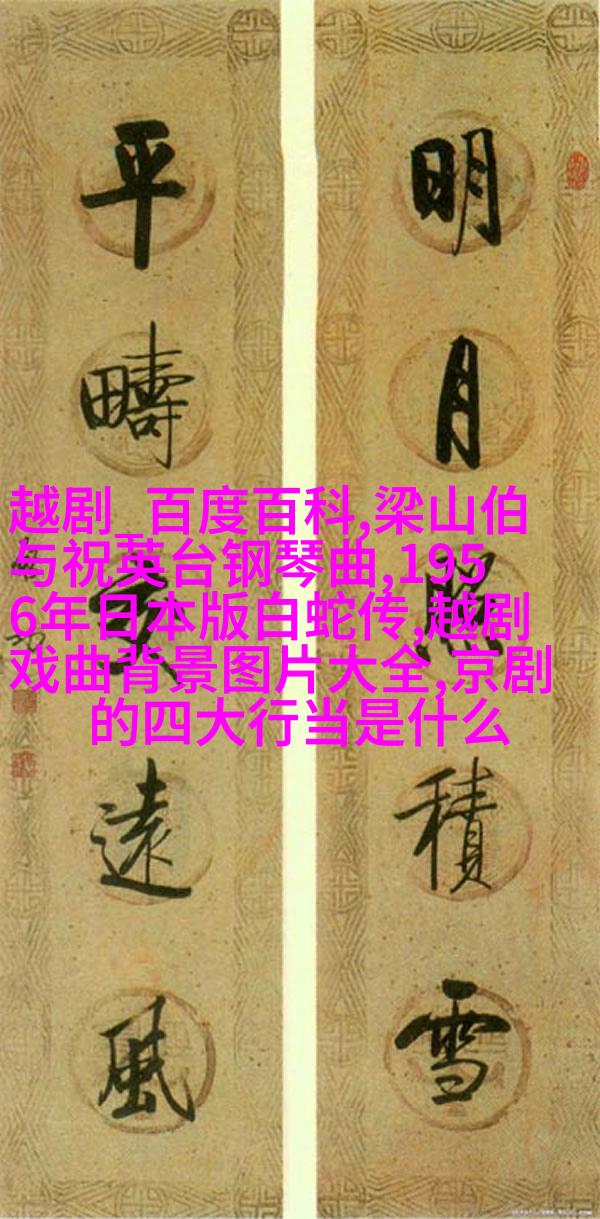 明月照積雪
平疇遠風
越剧_百度百科,梁山伯
与祝英台钢琴曲,195
6年日本版白蛇传,越剧
戏曲背景图片大全,京剧
的四大行当是什么